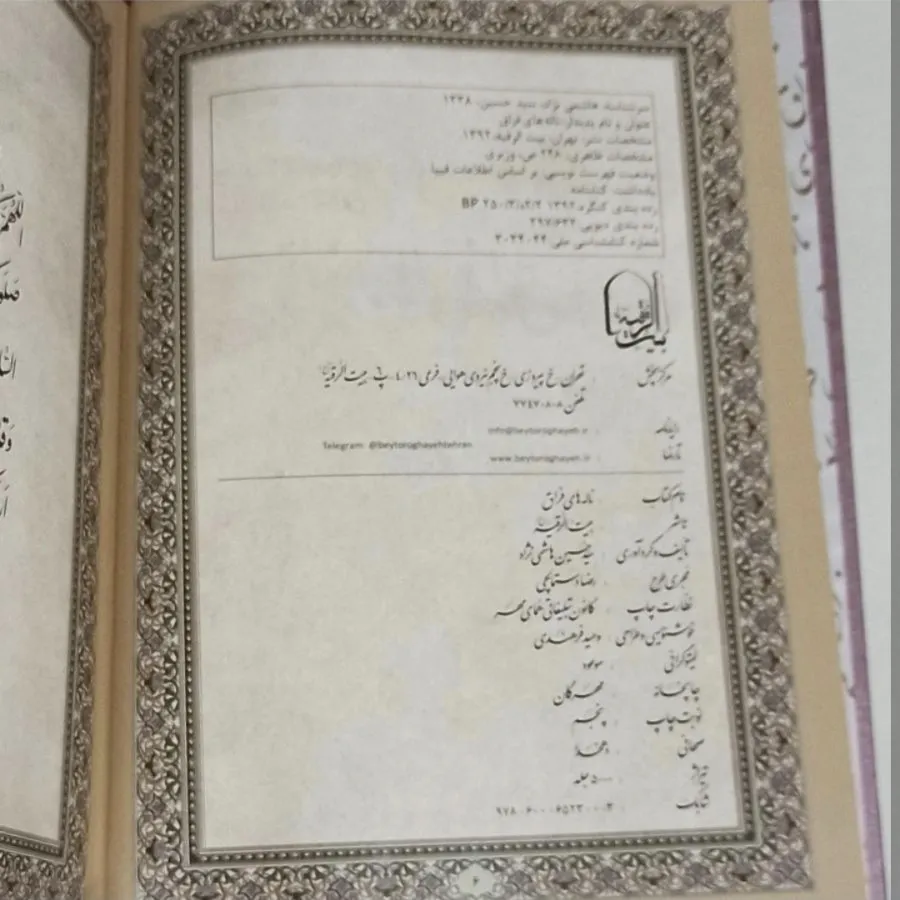 سرشناسه: هاشمی نژاد، سید حسین، ۱۳۳۸
عنوان و نام پدیدآور: ناله های فراق
مشخصات نشر: تهران: بیت الرقیه، ۱۳۹۲
مشخصات ظاهری: ۲۲۶ ص. وزیری
وضعیت فهرست نویسی بر اساس اطلاعات فیپا
یادداشت: کتابنامه
رده بندی کنگره: ۱۳۹۲ BP ۲۵۰/۳/
رده بندی دیویی: ۲۹۷/۶۳۲
شماره کتابشناسی ملی:
بیت الرقیه
مرکز پخش : تهران، خ پیروزی، خ پنجم نیروی هوایی، فرعی ۲۱/۵، پ ، بیت الرقیه
تلفن ۷۷۴۷۰۸۰۸
رایانامه : info@beytoroghayeh.ir
Telegram: @beytoroghayehtehran
تارنما : www.beytoroghayeh.ir
نام کتاب : ناله های فراق
ناشر : بیت الرقیه
تألیف و گردآوری : سید حسین هاشمی نژاد
مجری طرح : رضا دستمالچی
نظارت چاپ : کانون تبلیغاتی همای مهر
خوشنویسی و طراحی : وحید فرهندی
لیتوگرافی :
چاپخانه : مهرگان
نوبت چاپ : پنجم
صحافی : دهخدا
تیراژ : ۵۰۰۰ جلد
شابک : ۹۷۸-۶۰۰-۶۵۲۳-۰۰-۳
۶